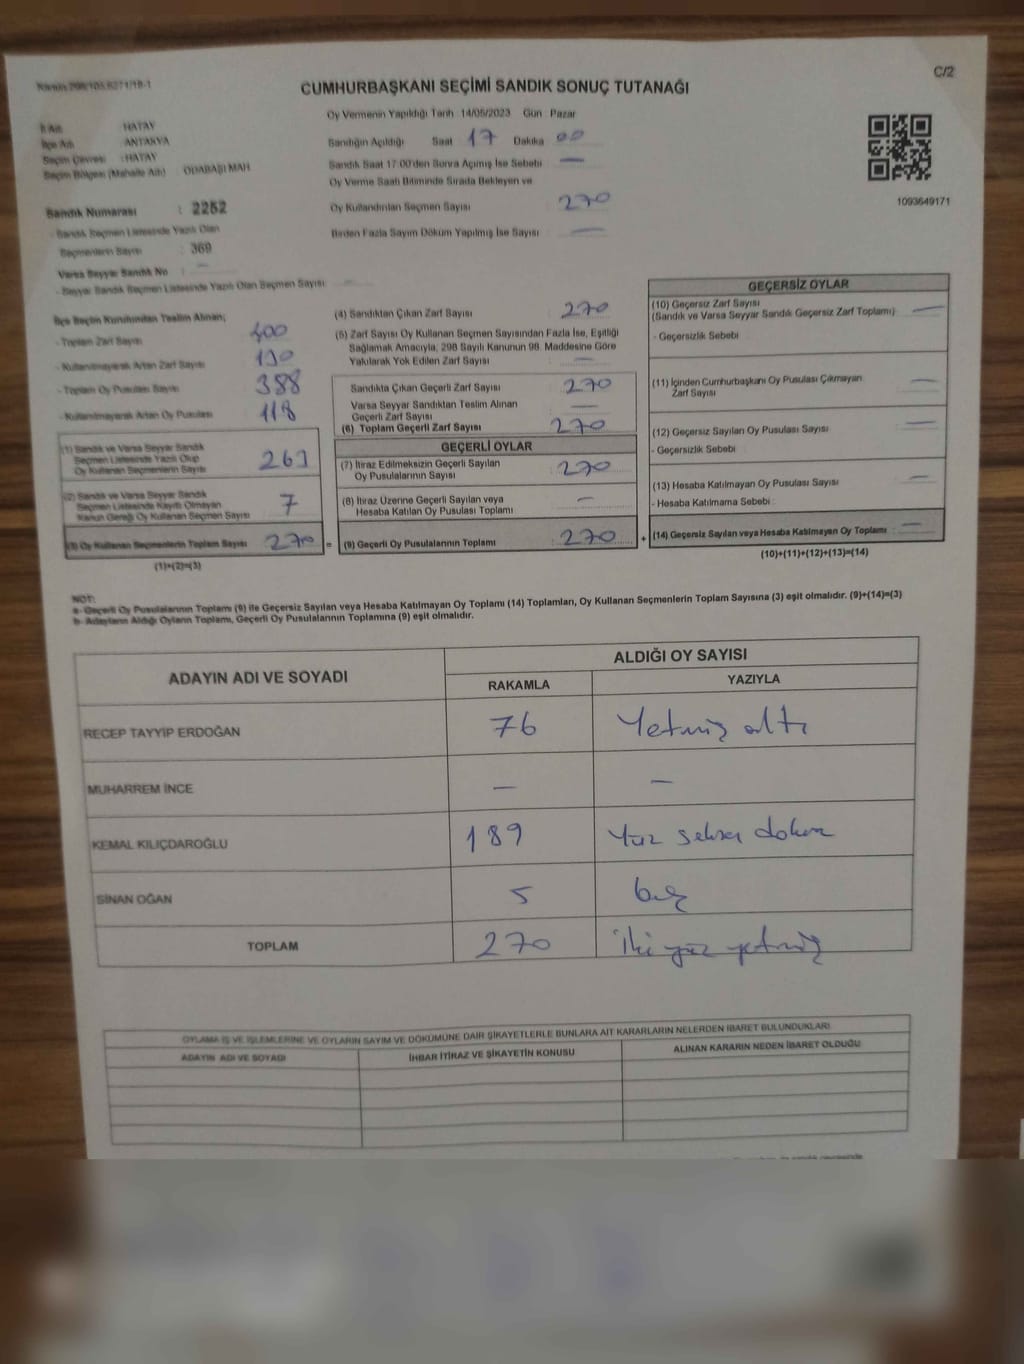 C/2
CUMHURBAŞKANI SEÇİMİ SANDIK SONUÇ TUTANAĞI
Oy Vermenin Yapıldığı Tarih : 14/05/2023 Gün : Pazar
İli Adı : HATAY
İlçe Adı : ANTAKYA
Seçim Çevresi : HATAY
Seçim Bölgesi (Mahalle Adı) : ODABAŞI MAH.
Sandığın Açıldığı Saat 17 Dakika 00
Sandık Saat 17:00'den Sonra Açımış İse Sebebi —
Oy Verme Saati Bitiminde Sırada Bekleyen ve
Oy Kullandırılan Seçmen Sayısı 270
Birden Fazla Sayım Döküm Yapılmış İse Sayısı —
1093649171
Sandık Numarası : 2252
- Sandık Seçmen Listesinde Yazılı Olan
Seçmenlerin Sayısı : 369
Varsa Seyyar Sandık No : —
- Seyyar Sandık Seçmen Listesinde Yazılı Olan Seçmen Sayısı: —
İlçe Seçim Kurulundan Teslim Alınan;
- Toplam Zarf Sayısı 400
- Kullanılmayarak Artan Zarf Sayısı 130
- Toplam Oy Pusulası Sayısı 388
- Kullanılmayarak Artan Oy Pusulası 118
(1) Sandık ve Varsa Seyyar Sandık
Seçmen Listesinde Yazılı Olup
Oy Kullanan Seçmenlerin Sayısı 263
(2) Sandık ve Varsa Seyyar Sandık
Seçmen Listesinde Kayıtlı Olmayan
Kanun Gereği Oy Kullanan Seçmen Sayısı 7
(3) Oy Kullanan Seçmenlerin Toplam Sayısı 270 =
(1)+(2)=(3)
(4) Sandıktan Çıkan Zarf Sayısı 270
(5) Zarf Sayısı Oy Kullanan Seçmen Sayısından Fazla İse, Eşitliği
Sağlamak Amacıyla, 298 Sayılı Kanunun 98. Maddesine Göre
Yakılarak Yok Edilen Zarf Sayısı —
Sandıkta Çıkan Geçerli Zarf Sayısı 270
Varsa Seyyar Sandıktan Teslim Alınan
Geçerli Zarf Sayısı —
(6) Toplam Geçerli Zarf Sayısı 270
GEÇERLİ OYLAR
(7) İtiraz Edilmeksizin Geçerli Sayılan
Oy Pusulalarının Sayısı 270
(8) İtiraz Üzerine Geçerli Sayılan veya
Hesaba Katılan Oy Pusulası Toplamı —
(9) Geçerli Oy Pusulalarının Toplamı : 270 +
GEÇERSİZ OYLAR
(10) Geçersiz Zarf Sayısı
(Sandık ve Varsa Seyyar Sandık Geçersiz Zarf Toplamı) —
- Geçersizlik Sebebi :
(11) İçinden Cumhurbaşkanı Oy Pusulası Çıkmayan
Zarf Sayısı —
(12) Geçersiz Sayılan Oy Pusulası Sayısı —
- Geçersizlik Sebebi :
(13) Hesaba Katılmayan Oy Pusulası Sayısı —
- Hesaba Katılmama Sebebi :
(14) Geçersiz Sayılan veya Hesaba Katılmayan Oy Toplamı : —
(10)+(11)+(12)+(13)=(14)
NOT:
a- Geçerli Oy Pusulalarının Toplamı (9) ile Geçersiz Sayılan veya Hesaba Katılmayan Oy Toplamı (14) Toplamları, Oy Kullanan Seçmenlerin Toplam Sayısına (3) eşit olmalıdır. (9)+(14)=(3)
b- Adayların Aldığı Oyların Toplamı, Geçerli Oy Pusulalarının Toplamına (9) eşit olmalıdır.
ADAYIN ADI VE SOYADI
ALDIĞI OY SAYISI
RAKAMLA YAZIYLA
RECEP TAYYİP ERDOĞAN 76 Yetmiş altı
MUHARREM İNCE — —
KEMAL KILIÇDAROĞLU 189 Yüz seksen dokuz
SİNAN OĞAN 5 beş
TOPLAM 270 iki yüz yetmiş
OYLAMA İŞ VE İŞLEMLERİNE VE OYLARIN SAYIM VE DÖKÜMÜNE DAİR ŞİKAYETLERLE BUNLARA AİT KARARLARIN NELERDEN İBARET BULUNDUKLARI
ADAYIN ADI VE SOYADI İHBAR İTİRAZ VE ŞİKAYETİN KONUSU ALINAN KARARIN NEDEN İBARET OLDUĞU